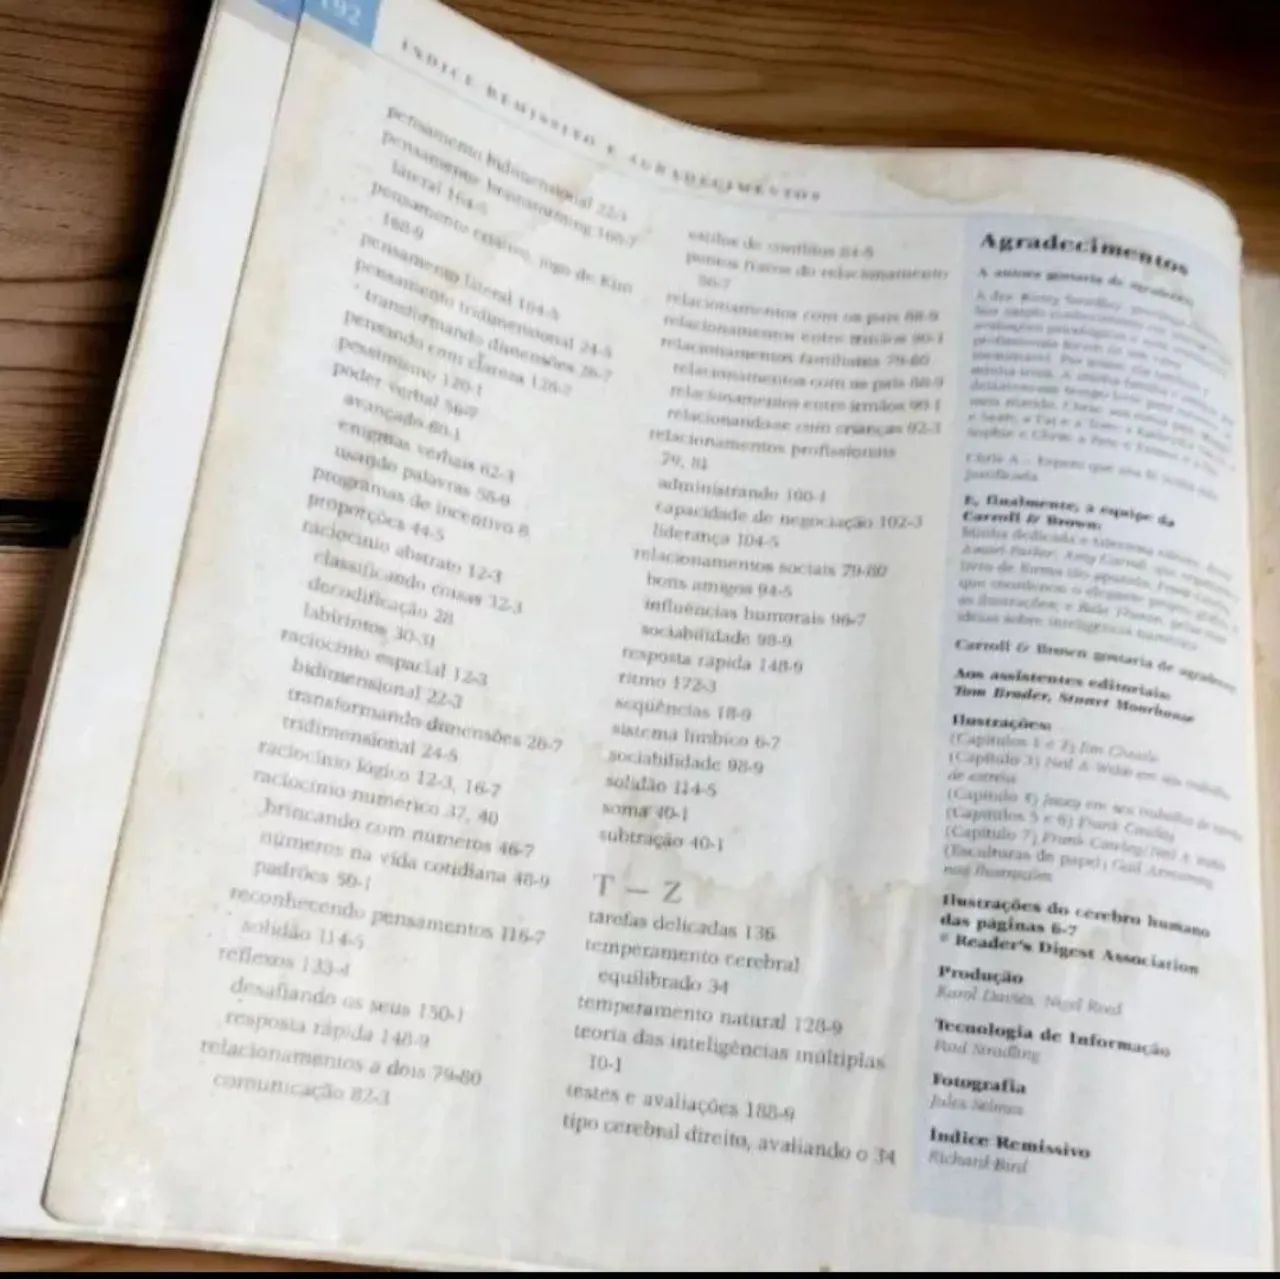 192
ÍNDICE REMISSIVO E AGRADECIMENTOS
pensamento bidimensional 22-3
pensamento brainstorming 166-7
lateral 164-5
pensamento criativo, jogo de Kim
168-9
pensamento lateral 164-5
pensamento tridimensional 24-5
transformando dimensões 26-7
pensando com clareza 126-7
pessimismo 120-1
poder verbal 56-7
avançado 60-1
enigmas verbais 62-3
usando palavras 58-9
programas de incentivo 8
proporções 44-5
raciocínio abstrato 12-3
classificando coisas 32-3
decodificação 28
labirintos 30-31
raciocínio espacial 12-3
bidimensional 22-3
transformando dimensões 26-7
tridimensional 24-5
raciocínio lógico 12-3, 16-7
raciocínio numérico 37, 40
brincando com números 46-7
números na vida cotidiana 48-9
padrões 50-1
reconhecendo pensamentos 116-7
solidão 114-5
reflexos 133-4
desafiando os seus 150-1
resposta rápida 148-9
relacionamentos a dois 79-80
comunicação 82-3
estilos de conflitos 84-5
pontos fracos do relacionamento
86-7
relacionamentos com os pais 88-9
relacionamentos entre irmãos 90-1
relacionamentos familiares 79-80
relacionamentos com os pais 88-9
relacionamentos entre irmãos 90-1
relacionando-se com crianças 92-3
relacionamentos profissionais
79, 81
administrando 100-1
capacidade de negociação 102-3
liderança 104-5
relacionamentos sociais 79-80
bons amigos 94-5
influências humorais 96-7
sociabilidade 98-9
resposta rápida 148-9
ritmo 172-3
seqüências 18-9
sistema límbico 6-7
sociabilidade 98-9
solidão 114-5
soma 40-1
subtração 40-1
T – Z
tarefas delicadas 136
temperamento cerebral
equilibrado 34
temperamento natural 128-9
teoria das inteligências múltiplas
10-1
testes e avaliações 188-9
tipo cerebral direito, avaliando o 34
Agradecimentos
A autora gostaria de agradecer:
justificada.
E, finalmente, a equipe da
Carroll & Brown:
Carroll & Brown gostaria de agradecer:
Aos assistentes editoriais:
Tom Broder, Stuart Moorhouse
Ilustrações:
(Capítulos 1 e 2) Jim Cheatle
(Capítulo 3) Neil A Webb em seu trabalho
de estréia
(Capítulo 4) em seu trabalho de
(Capítulos 5 e 6) Frank Cawley
(Capítulo 7) Frank Cawley/Neil A Webb
(Esculturas de papel) Gail Armstrong
Ilustrações do cérebro humano
das páginas 6-7
© Reader's Digest Association
Produção
Karol Davies, Nigel Reed
Tecnologia de Informação
Paul Stradling
Fotografia
Jules Selmes
Índice Remissivo
Richard Bird